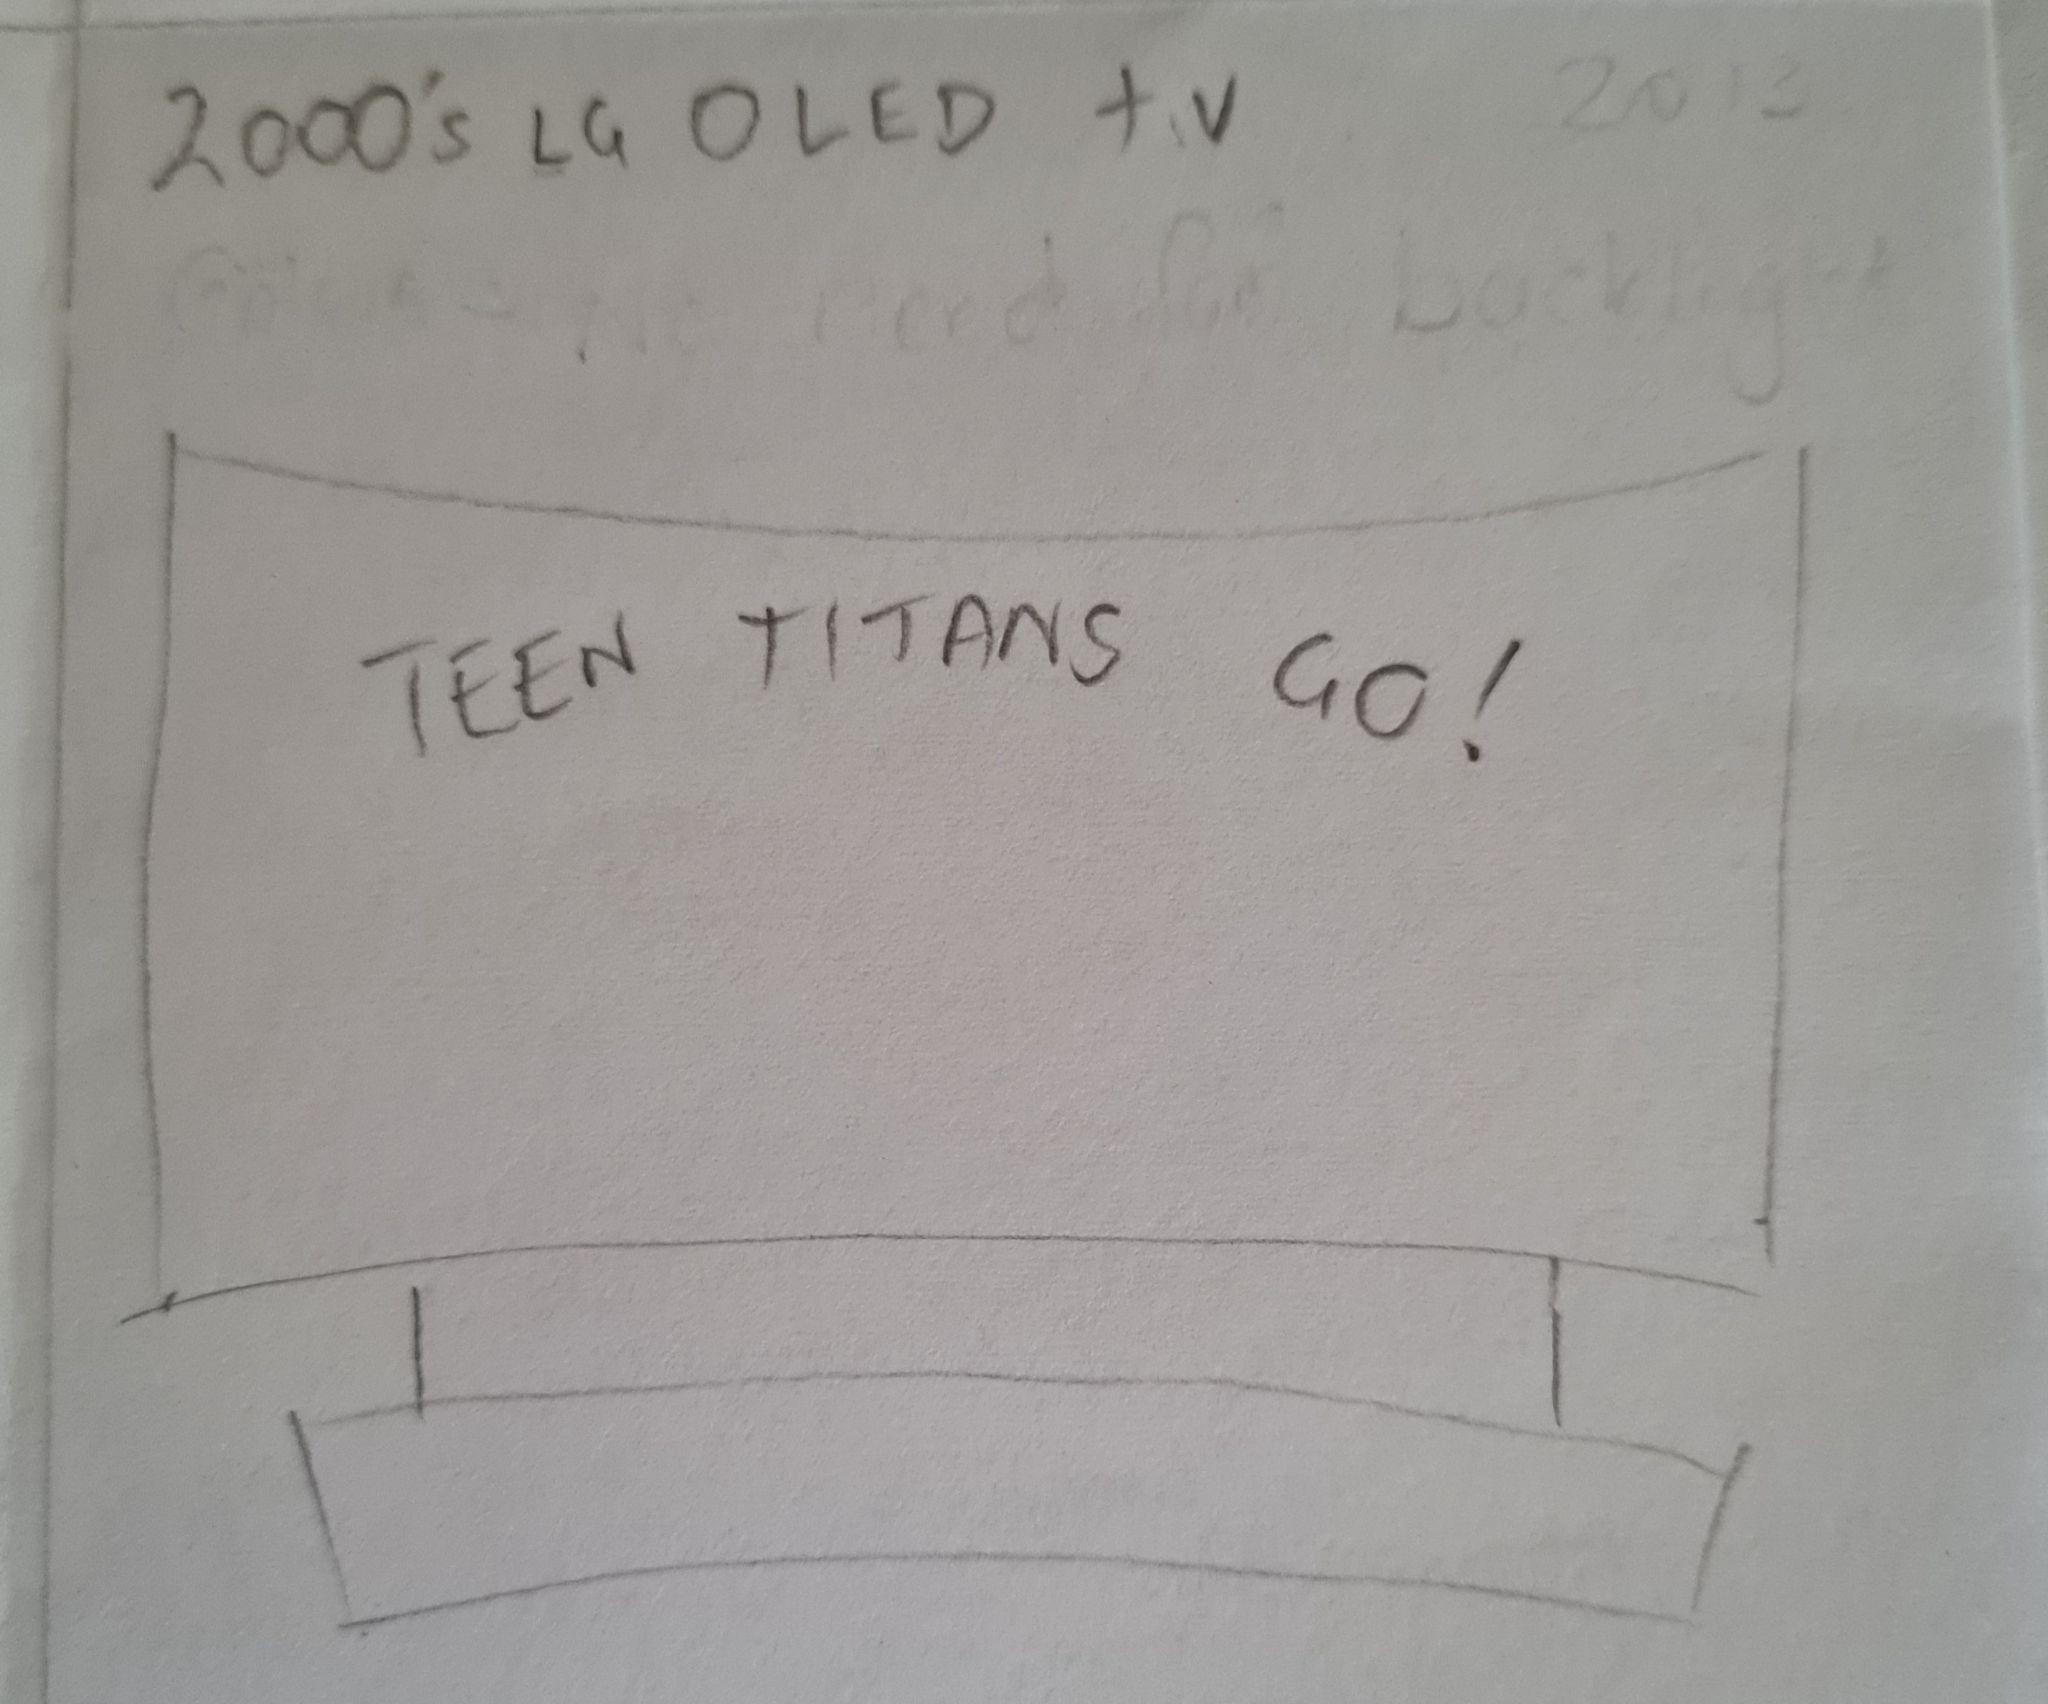 2000's LG OLED t.V 2013
need for backlight
TEEN TITANS GO!